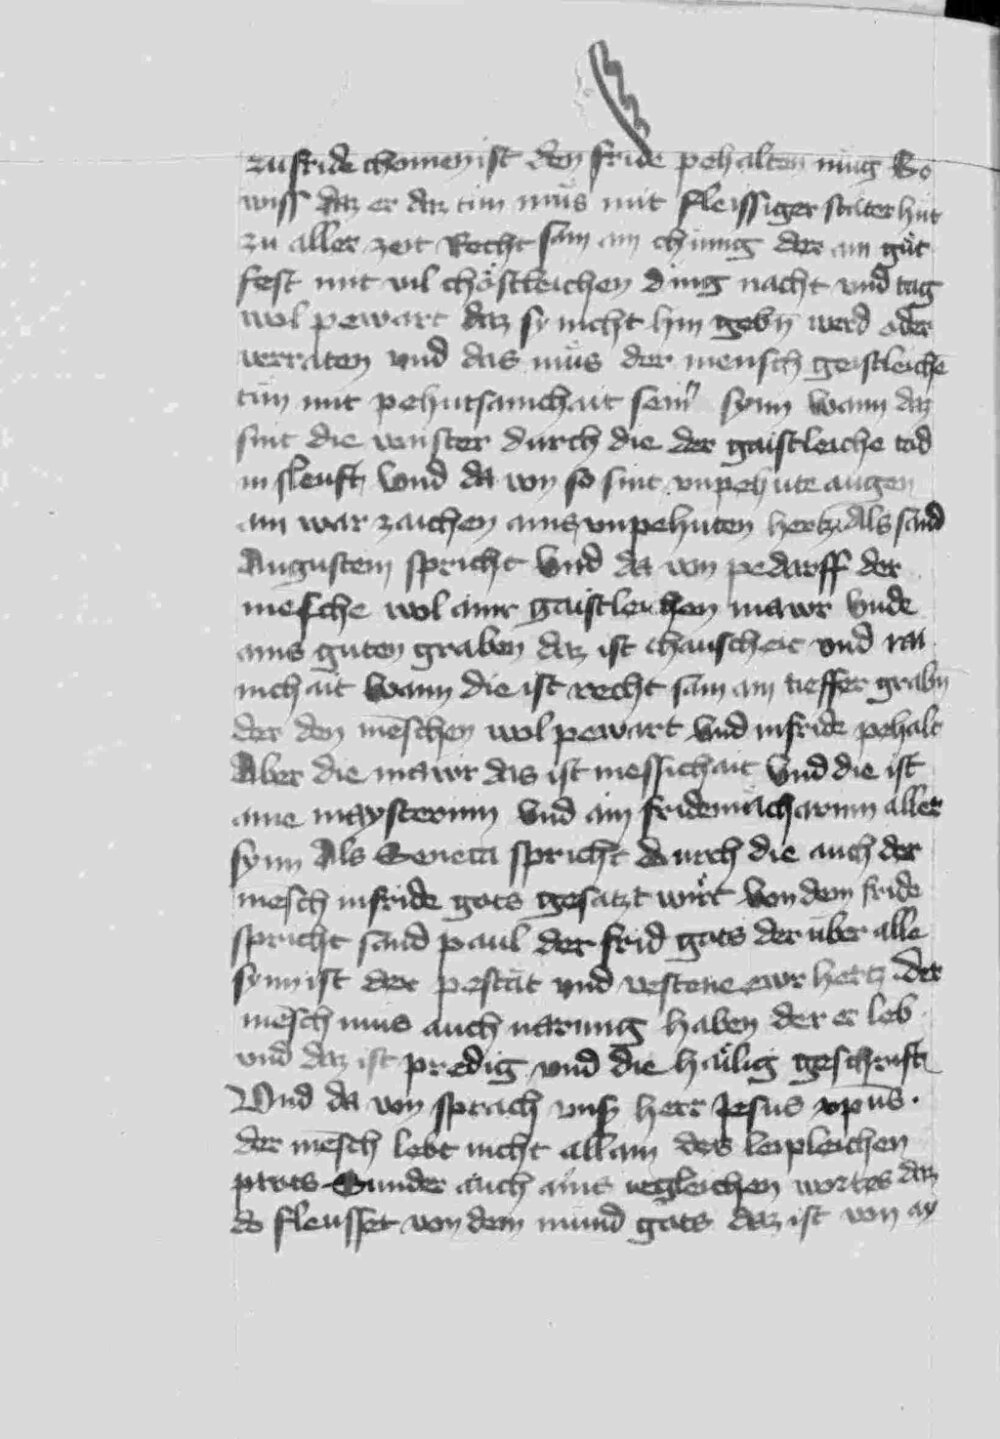 zu fride chomen ist den fride pehalten mug So
wiss daz er daz tun müs mit fleissiger stäter hüt
zu aller zeit Recht sam ain chunig der ain güt
fest mit vil chöstleichen ding nacht und tag
wol pewart daz sy nicht hin gebn̄ werd oder
verraten und das müs der mensch geistleichē
tün mit pehutsamchait seinˀ synn wann daz
sint die venster durch die der gaistleiche tod
in sleuft Vnd da von so sint vnpehute augen
ain war zaichen ains vnpehuten hertzē Als sand
Augustein spricht Vnd da von pedarff der
mēsche wol ainr gaistleichen mawr Vnde
ains guten graben daz ist chauscheit vnd rai
nichait Wann die ist recht sam ain tieffer grabn̄
der den mēschen wol pewart Vnd in fride pehalt
Aber die mawr das ist messichait Vnd die ist
aine maysterinn Vnd ain fridemacharinn aller
synn Als Seneca spricht durch die auch der
mēsch in fride gots gesatzt wirt Von dem fride
spricht sand paul der frid gots der über alle
synn ist der pestät vnd vestene ewr hertz. der
mēsch mus auch narung haben der er leb
vnd daz ist predig vnd die häilig geschrift
Vnd da von sprach vnsˀ herr Jesus xpūs.
der mēsch lebt nicht allain des leipleichen
prots Sunder auch ains iegleichen wortes daz
do fleusset von dem mund gots daz ist von ay